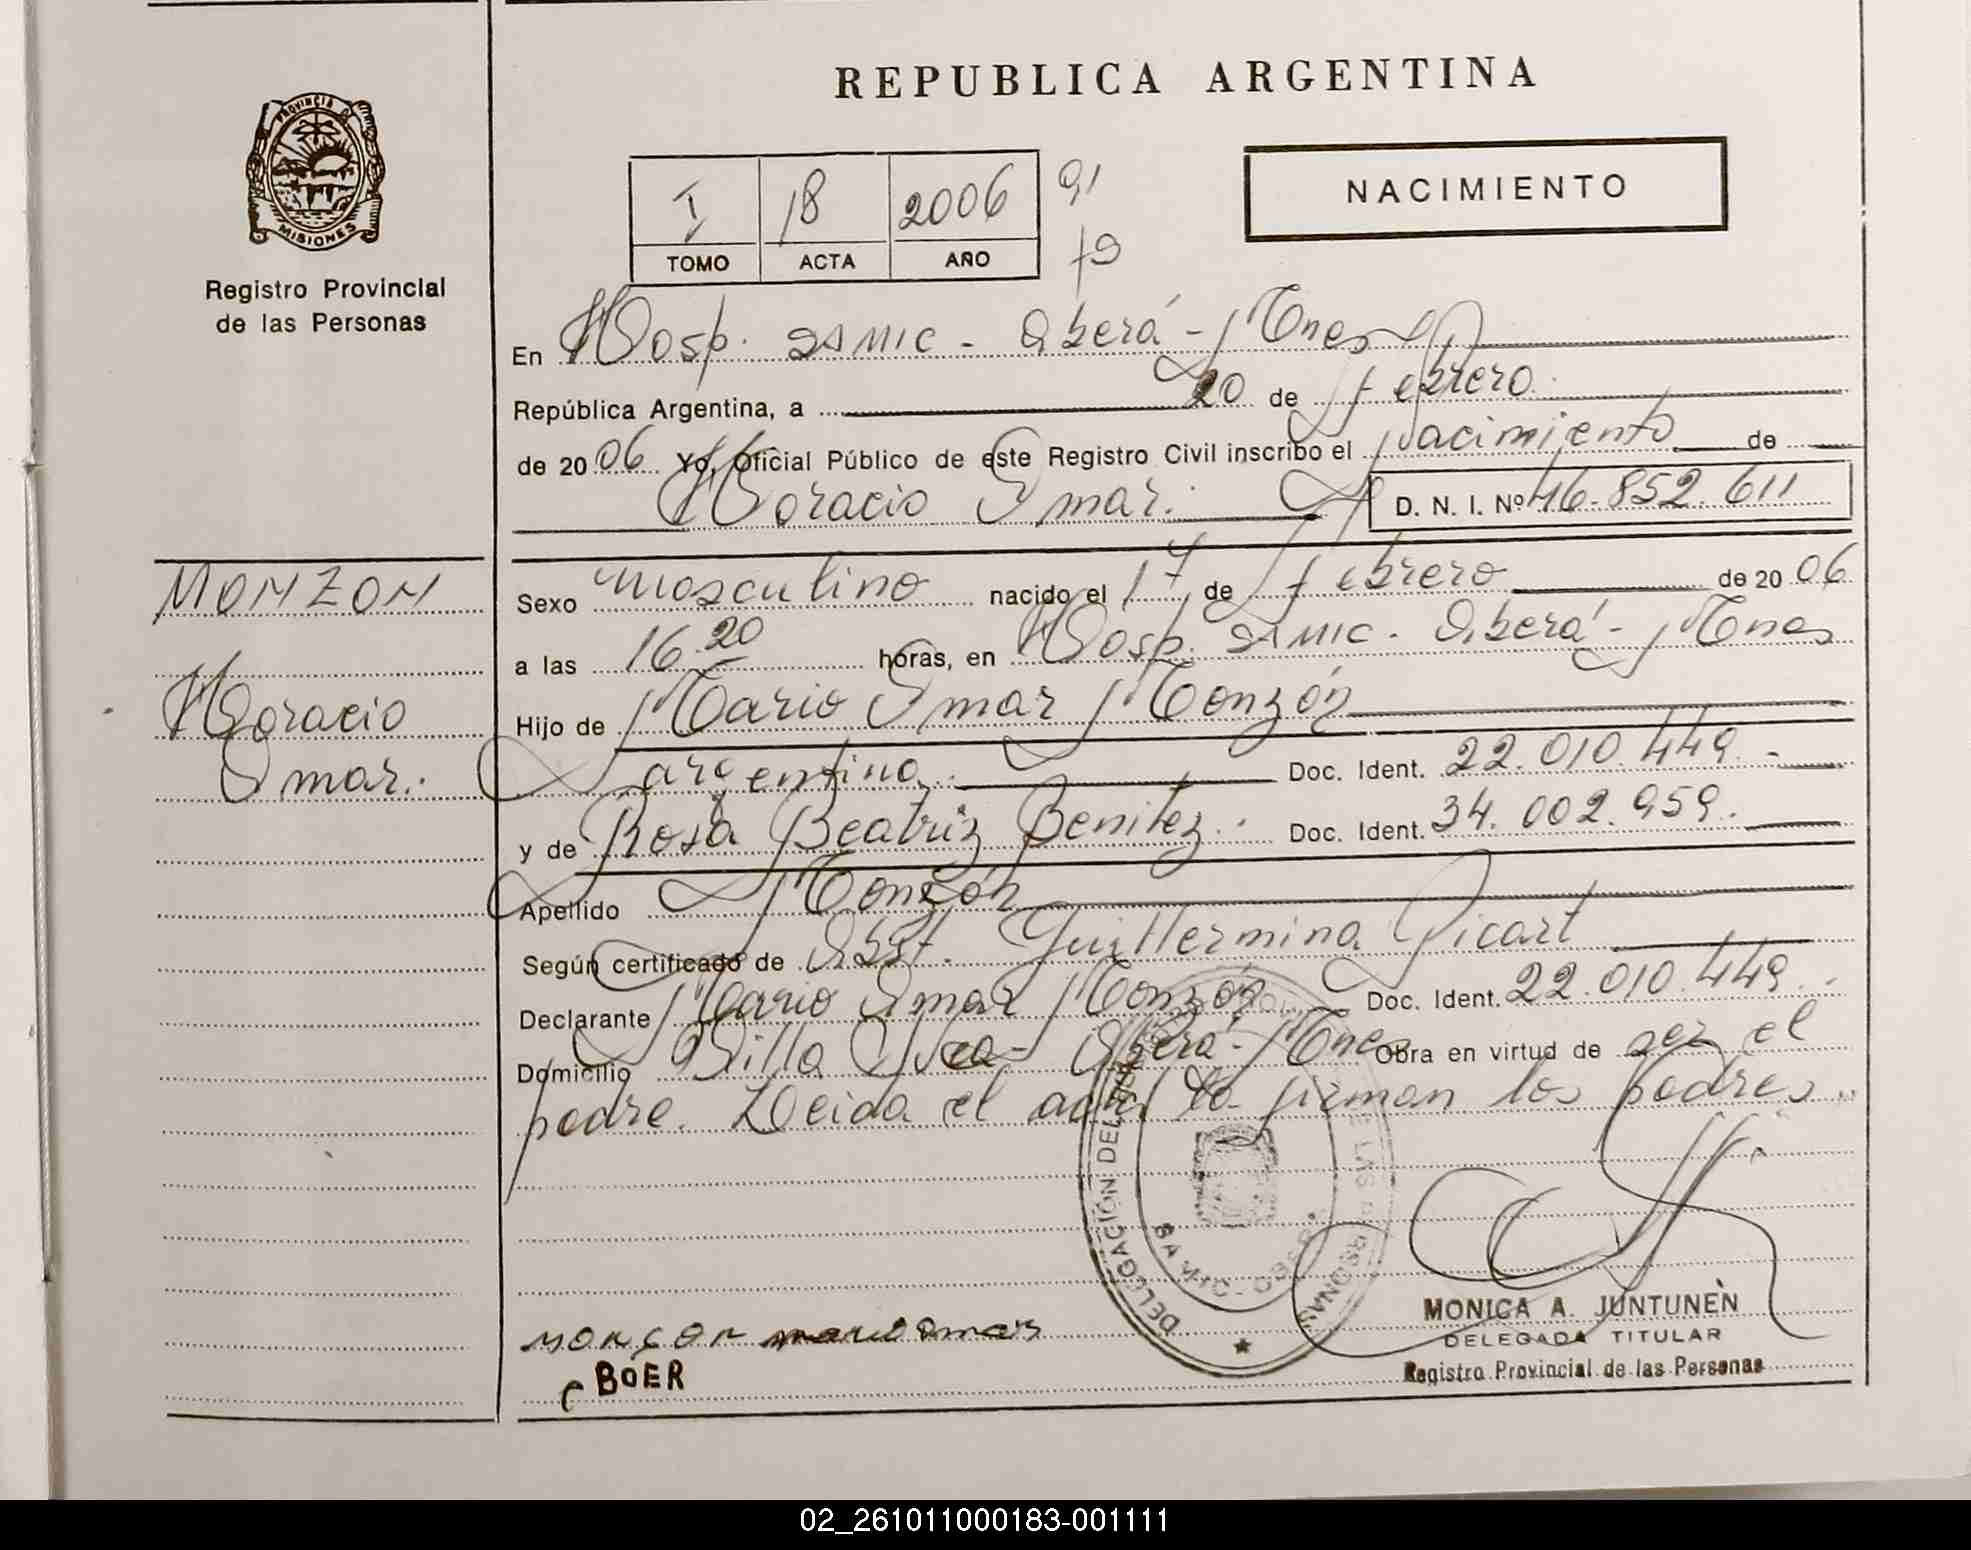 REPUBLICA ARGENTINA
PROVINCIA DE
MISIONES
Registro Provincial
de las Personas
I 18 2006 91
TOMO ACTA AÑO
NACIMIENTO
En Hosp. SAMIC - Oberá - Mnes
República Argentina, a 20 de febrero
de 20 06 Yo, Oficial Público de este Registro Civil inscribo el Nacimiento de
Horacio Omar. D. N. I. Nº 46.852.611
MONZON
Sexo masculino nacido el 17 de febrero de 20 06
a las 16.20 horas, en Hosp. SAMIC - Oberá - Mnes
Horacio
Omar.
Hijo de Mario Omar Monzón
argentino. Doc. Ident. 22.010.449.-
y de Rosa Beatriz Benitez. Doc. Ident. 34.002.959.
Apellido Monzón
Según certificado de Obst. Guillermina Picart
Declarante Mario Omar Monzón Doc. Ident. 22.010.449.
Domicilio Villa - Oberá - Mnes Obra en virtud de ser el
padre. Leida el acta la firman los padres.
DELEGACIÓN DEL LAS PERSONAS
SAMIC - OBERÁ
MONICA A. JUNTUNEN
DELEGADA TITULAR
Registro Provincial de las Personas
monson mario omar
BOER
02_261011000183-001111